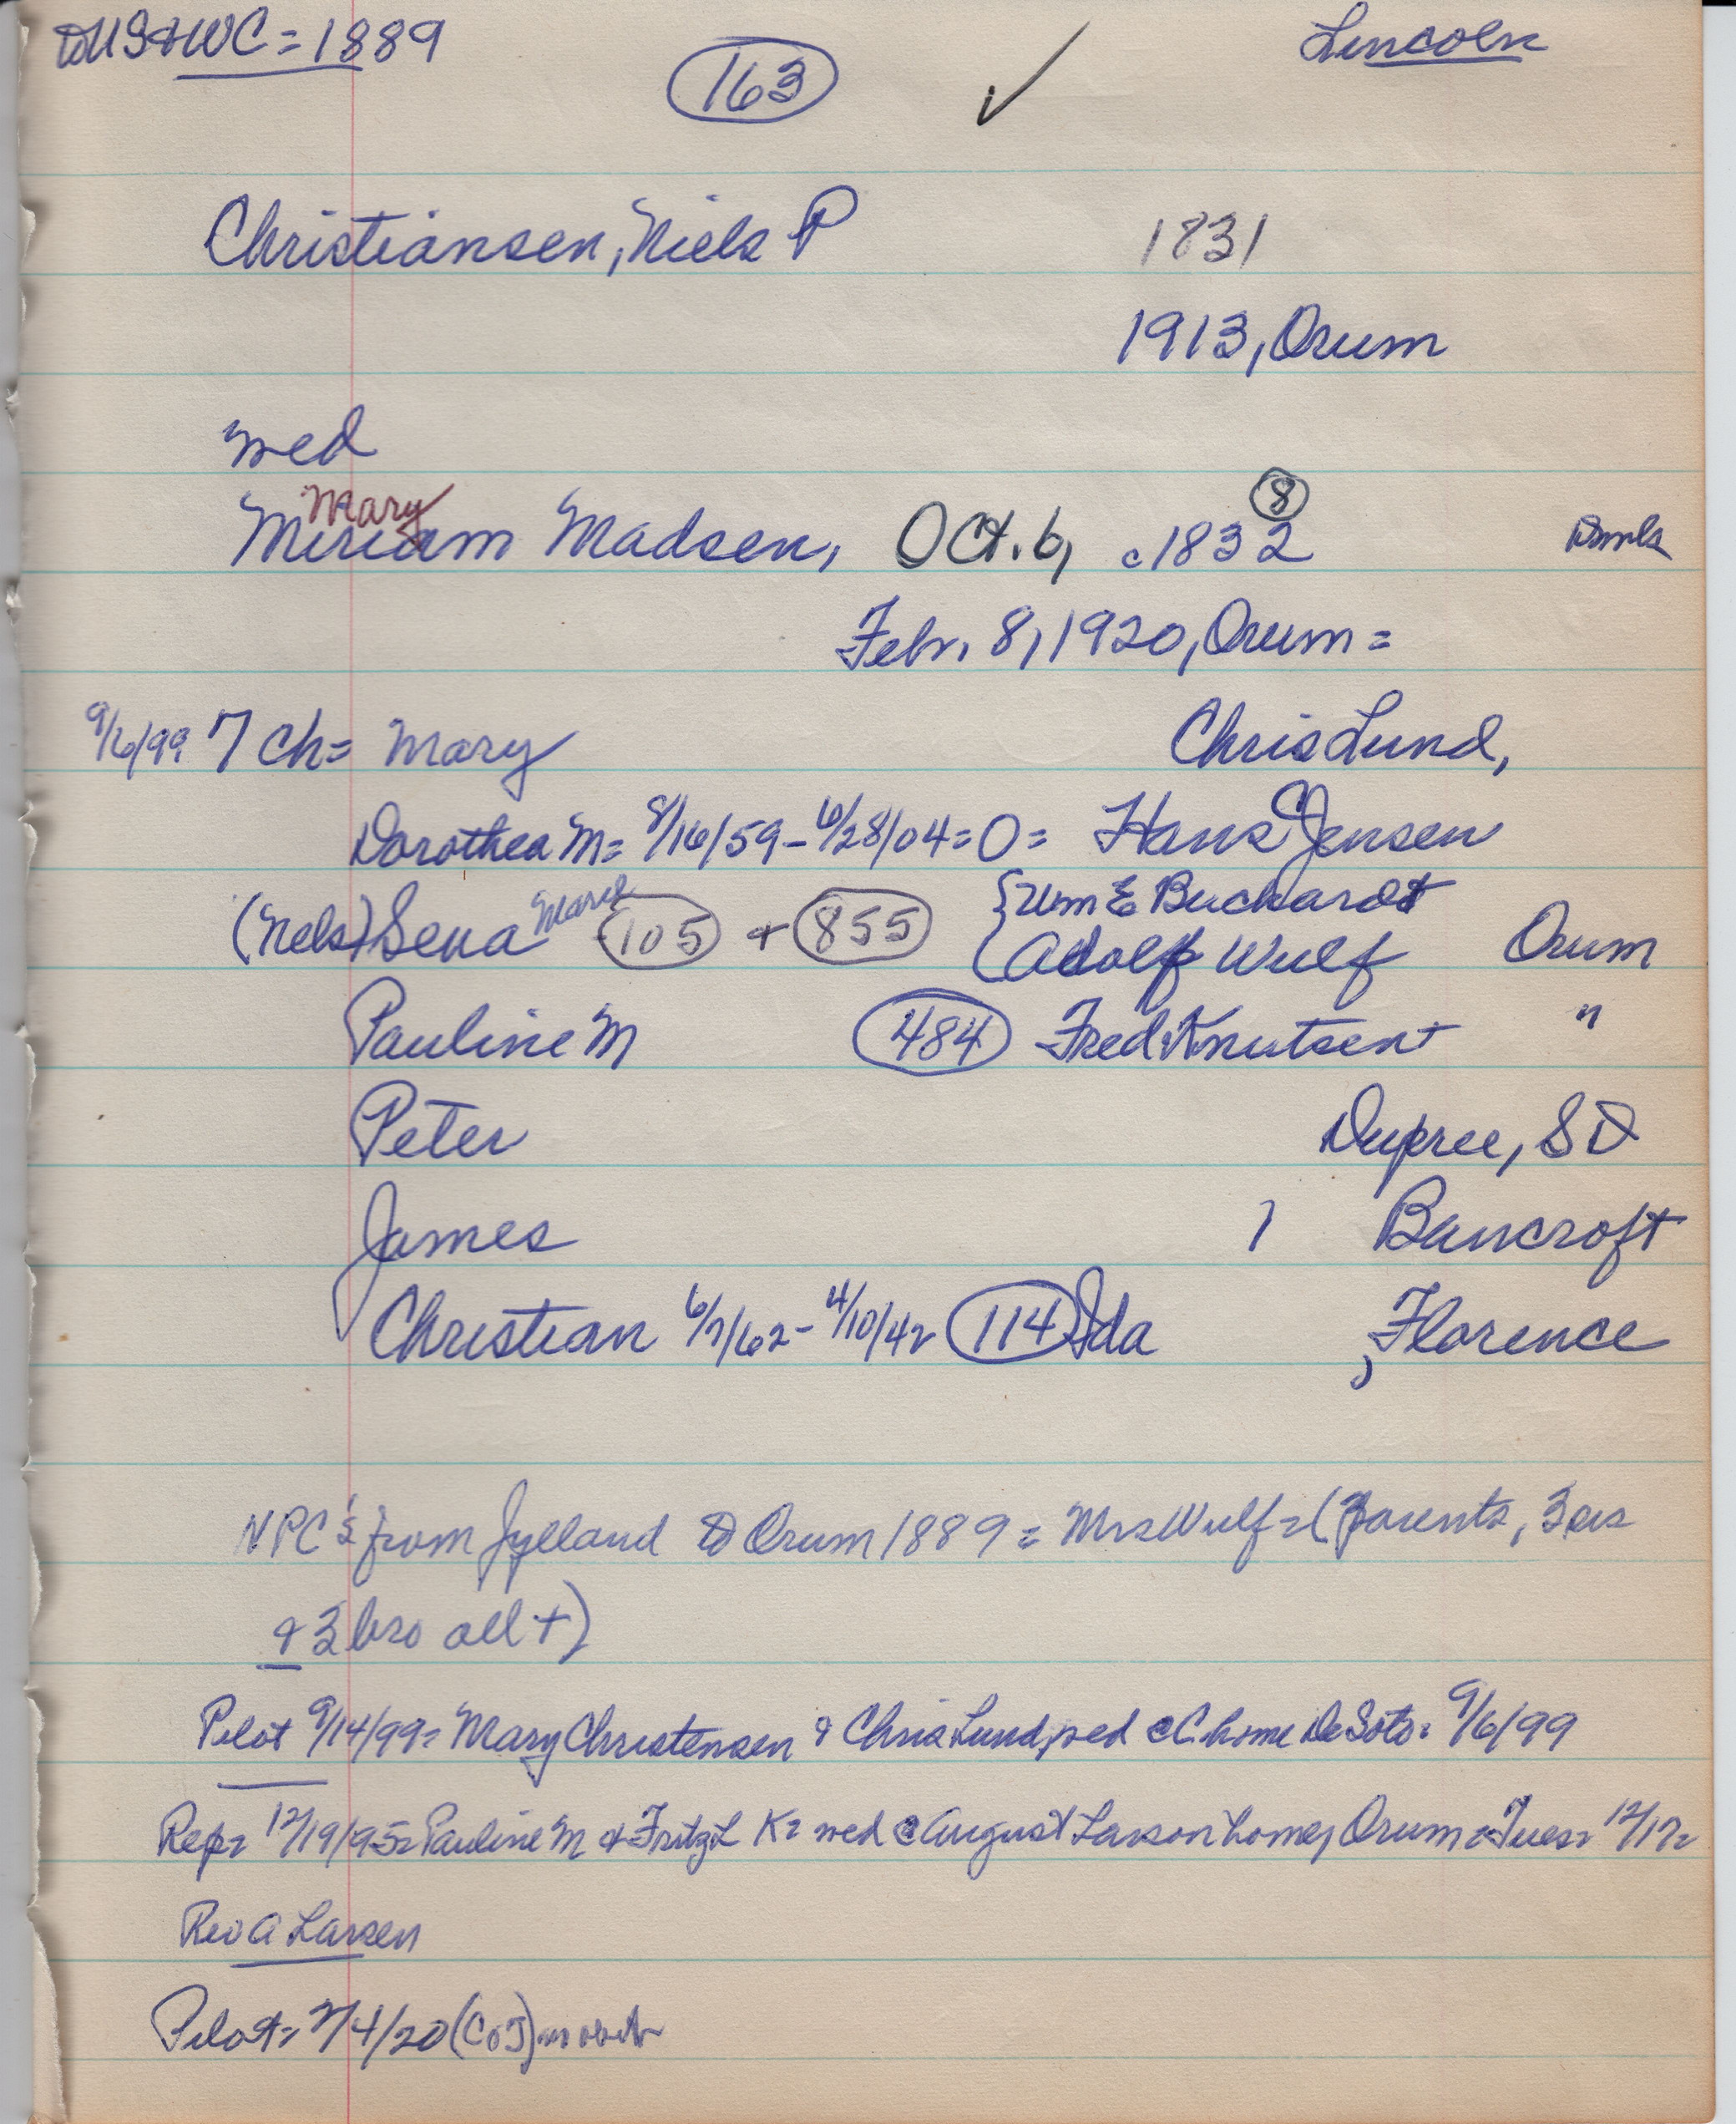 to US & WC = 1889
163
✓
Lincoln
Christiansen, Niels P 1831
1913, Orum
wed
Mary 8
Miriam Madsen, Oct. 6, c1832 Dmk
Febr. 8, 1920, Orum =
9/6/99 7 ch = Mary Chris Lund,
Dorothea M = 8/16/59 - 6/28/04 = 0 = Hans C Jensen
(Nels) Sena Marie 105 + 855 { Wm E Buckardt
Adolf Wulf Orum
Pauline M 484 Fred Knutsen + "
Peter Dupree, SD
James , Bancroft
Christian 6/7/62 - 4/10/42 114 Ida , Florence
NPC's from Jylland to Orum 1889 = Mrs Wulf = (parents, 3 sis
& 3 bro all +)
Pilot 9/14/99 = Mary Christensen & Chris Lund, wed @ C home DeSoto = 9/6/99
Rep = 12/19/95 = Pauline M & Fritz L K = wed @ August Larson home, Orum = Tues = 12/17 =
Rev A Larsen
Pilot = 2/4/20 (CoJ) no obit